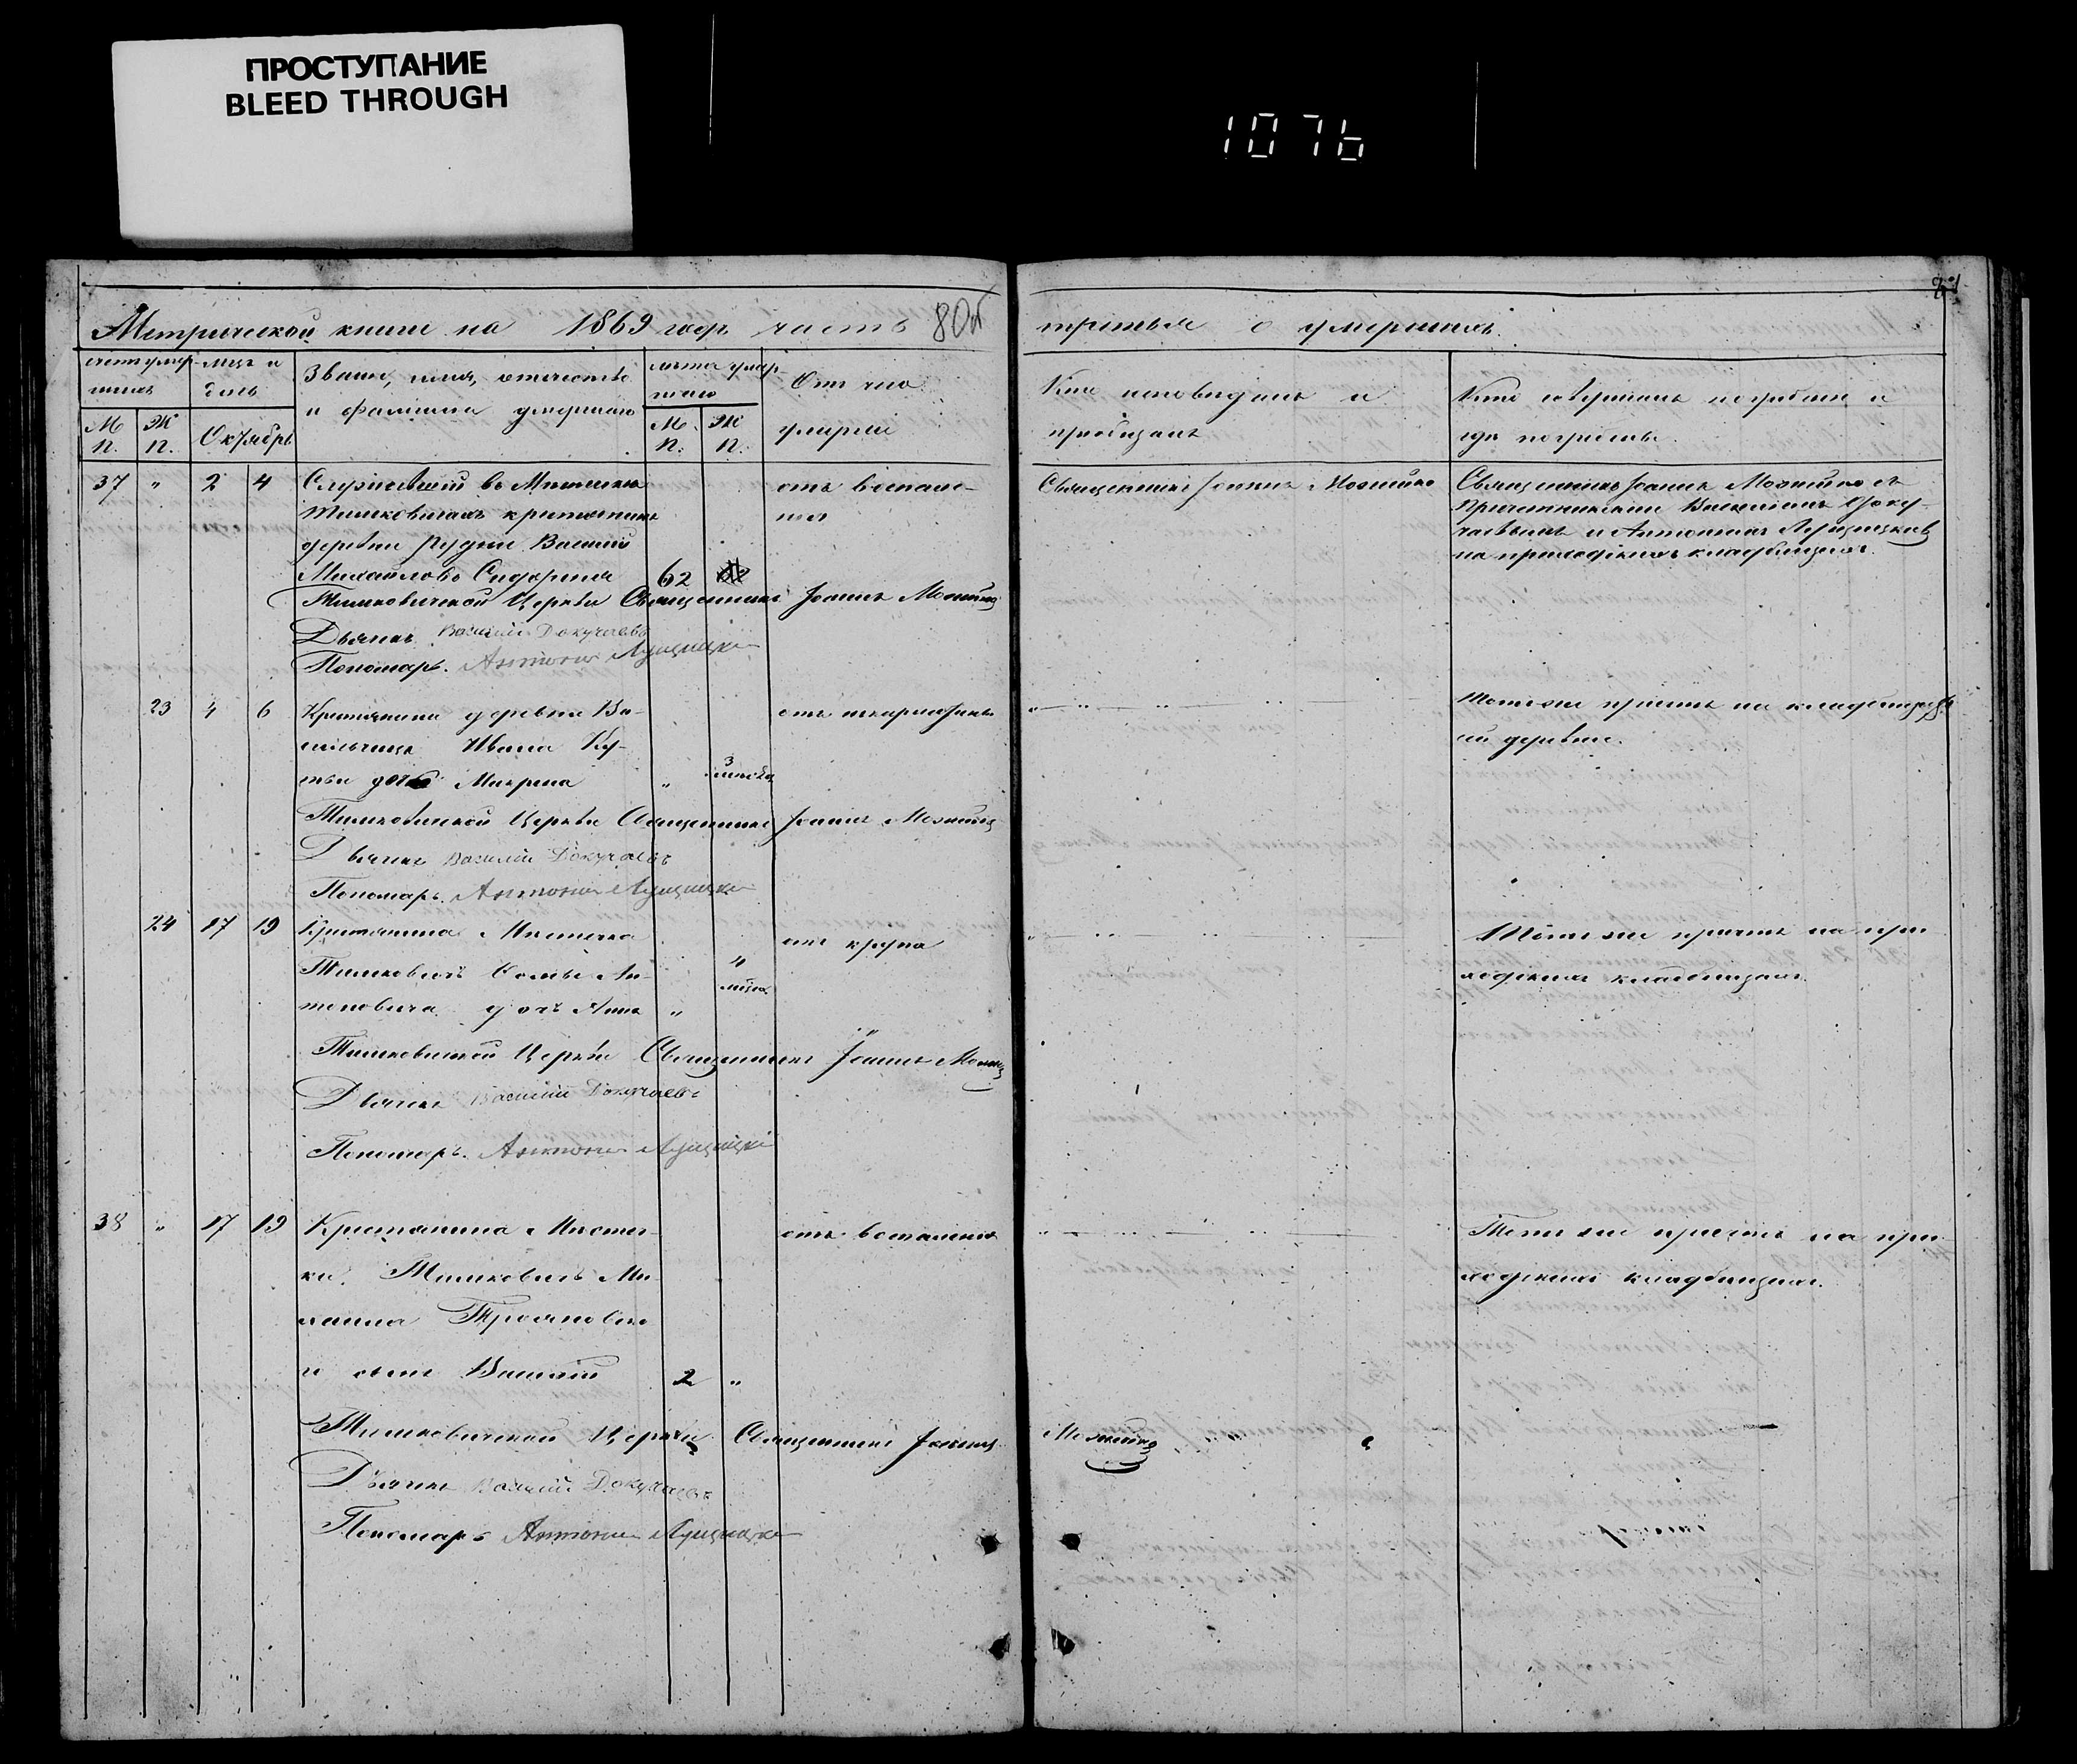 ПРОСТУПАНИЕ
BLEED THROUGH
1076
Метрической книги на 1869 годъ часть
80об
третья о умершихъ.
счетъ умер-
шихъ
мцъ и
день
Званіе, имя, отечество
и фамилія умершаго
лѣта умер-
шаго
Отъ чего
умеръ
Кто исповѣдалъ и
пріобщалъ
Кто совершалъ погребеніе и
гдѣ погребены.
М. п.
Ж. п.
Октябрь
М. п.
Ж. п.
37 " 2 4
въ Мѣстечкѣ
Тимковичахъ крестьянинъ
деревни Рудни Василій
Михайловъ
62
отъ воспале-
нія
Священникъ Іоаннъ Можейко
Священникъ Іоаннъ Можейко съ
Причетниками Василіемъ Доку-
чаевымъ и Антоніемъ Лущицкимъ
на приходскихъ кладбищахъ.
Тимковичской Церкви Священникъ Іоаннъ Можейко
Дьячекъ Василій Докучаевъ
Пономарь. Антоній Лущицкій
23 4 6
Крестьянина деревни Ва-
Ивана Ку-
дочь Макрина
" 3
отъ
Тотъ же причтъ на кладбищѣ
ей деревни.
Тимковичской Церкви Священникъ Іоаннъ Можейко
Дьячекъ Василій Докучаевъ
Пономарь. Антоній Лущицкій
24 17 19
Крестьянина Мѣстечка
Тимковичъ Фомы Ан-
тоновича дочь Анна
" 4
мѣсяца
отъ крупа
Тотъ же причтъ на при-
ходскихъ кладбищахъ.
Тимковичской Церкви Священникъ Іоаннъ Можейко
Дьячекъ Василій Докучаевъ
Пономарь. Антоній Лущицкій
38 " 17 19
Крестьянина Мѣстеч-
ка Тимковичъ Ми-
хаила Трояновска-
го сынъ Василій
2 "
отъ воспаленія
Тотъ же причтъ на при-
ходскихъ кладбищахъ.
Тимковичской Церкви Священникъ Іоаннъ
Можейко
Дьячекъ Василій Докучаевъ
Пономарь Антоній Лущицкій